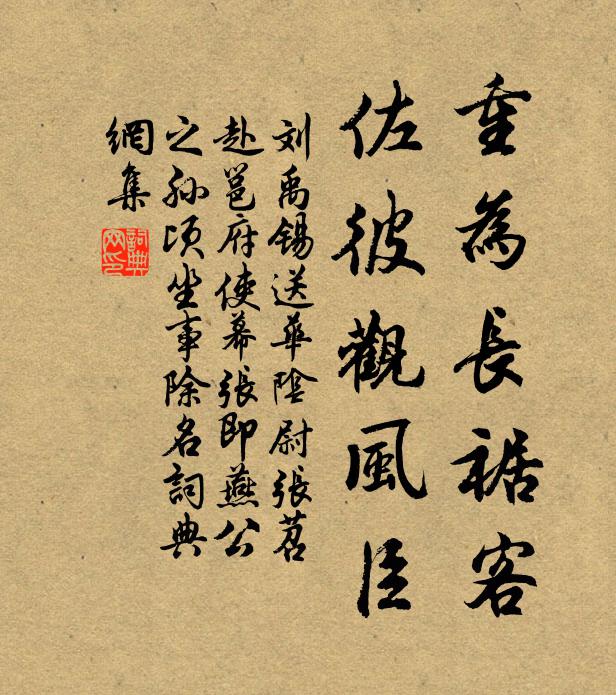 重為長裾客
佐彼觀風臣
刘禹錫送華陰尉張苕
赴邕府使幕張即燕公
之孫頃坐事除名詞典
網集
詞典
网印